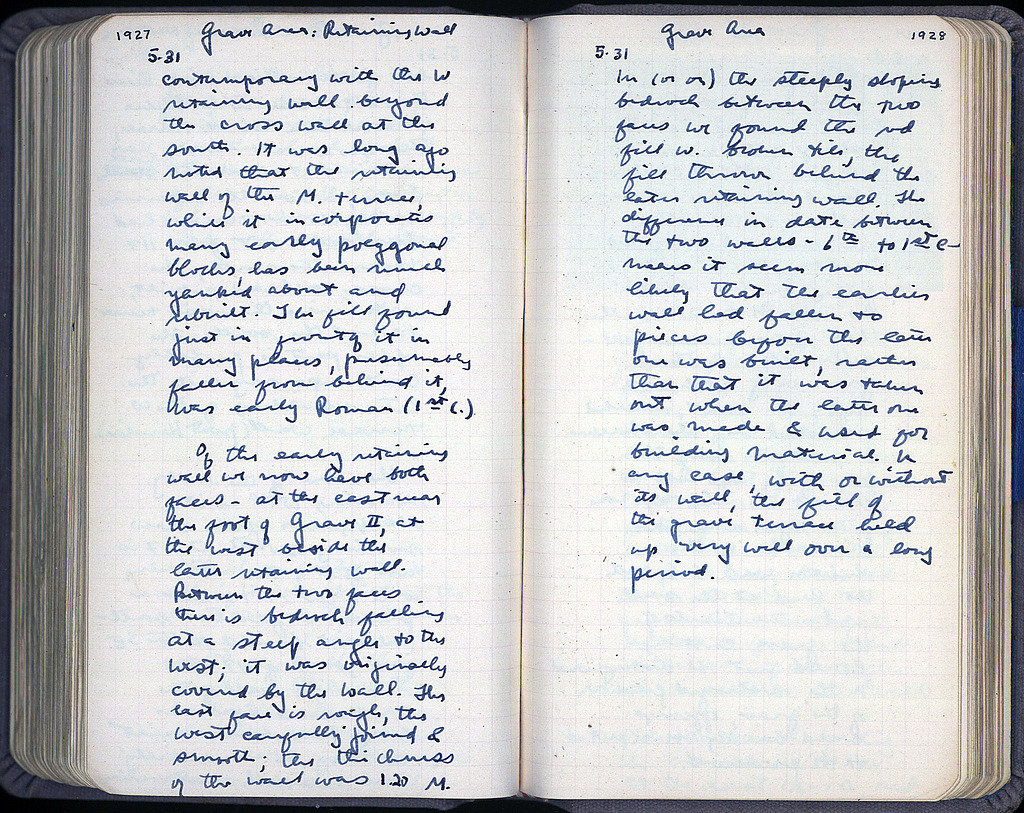 1927
Grave Area: Retaining Wall
5-31
contemporary with the W
retaining wall beyond
the cross wall at the
south. It was long ago
noted that the retaining
wall of the M. terrace,
while it incorporates
many early polygonal
blocks, has been much
yanked about and
rebuilt. The fill found
just in front of it in
many places, presumably
fallen from behind it,
was early Roman (1st C.)
Of the early retaining
wall we now have both
faces - at the east near
the foot of Grave II, at
the west beside the
later retaining wall.
Between the two faces
there is bedrock falling
at a steep angle to the
west; it was originally
covered by the wall. The
east face is rough, the
west carefully joined &
smooth; the thickness
of the wall was 1.20 M.
Grave Area
1928
5-31
In (or on) the steeply sloping
bedrock between the two
faces we found the red
fill w. broken tile, the
fill thrown behind the
later retaining wall. The
difference in date between
the two walls - 6th to 1st C -
makes it seem more
likely that the earlier
wall had fallen to
pieces before the later
one was built, rather
than that it was taken
out when the later one
was made & used for
building material. In
any case, with or without
its wall, the fill of
the grave terrace held
up very well over a long
period.